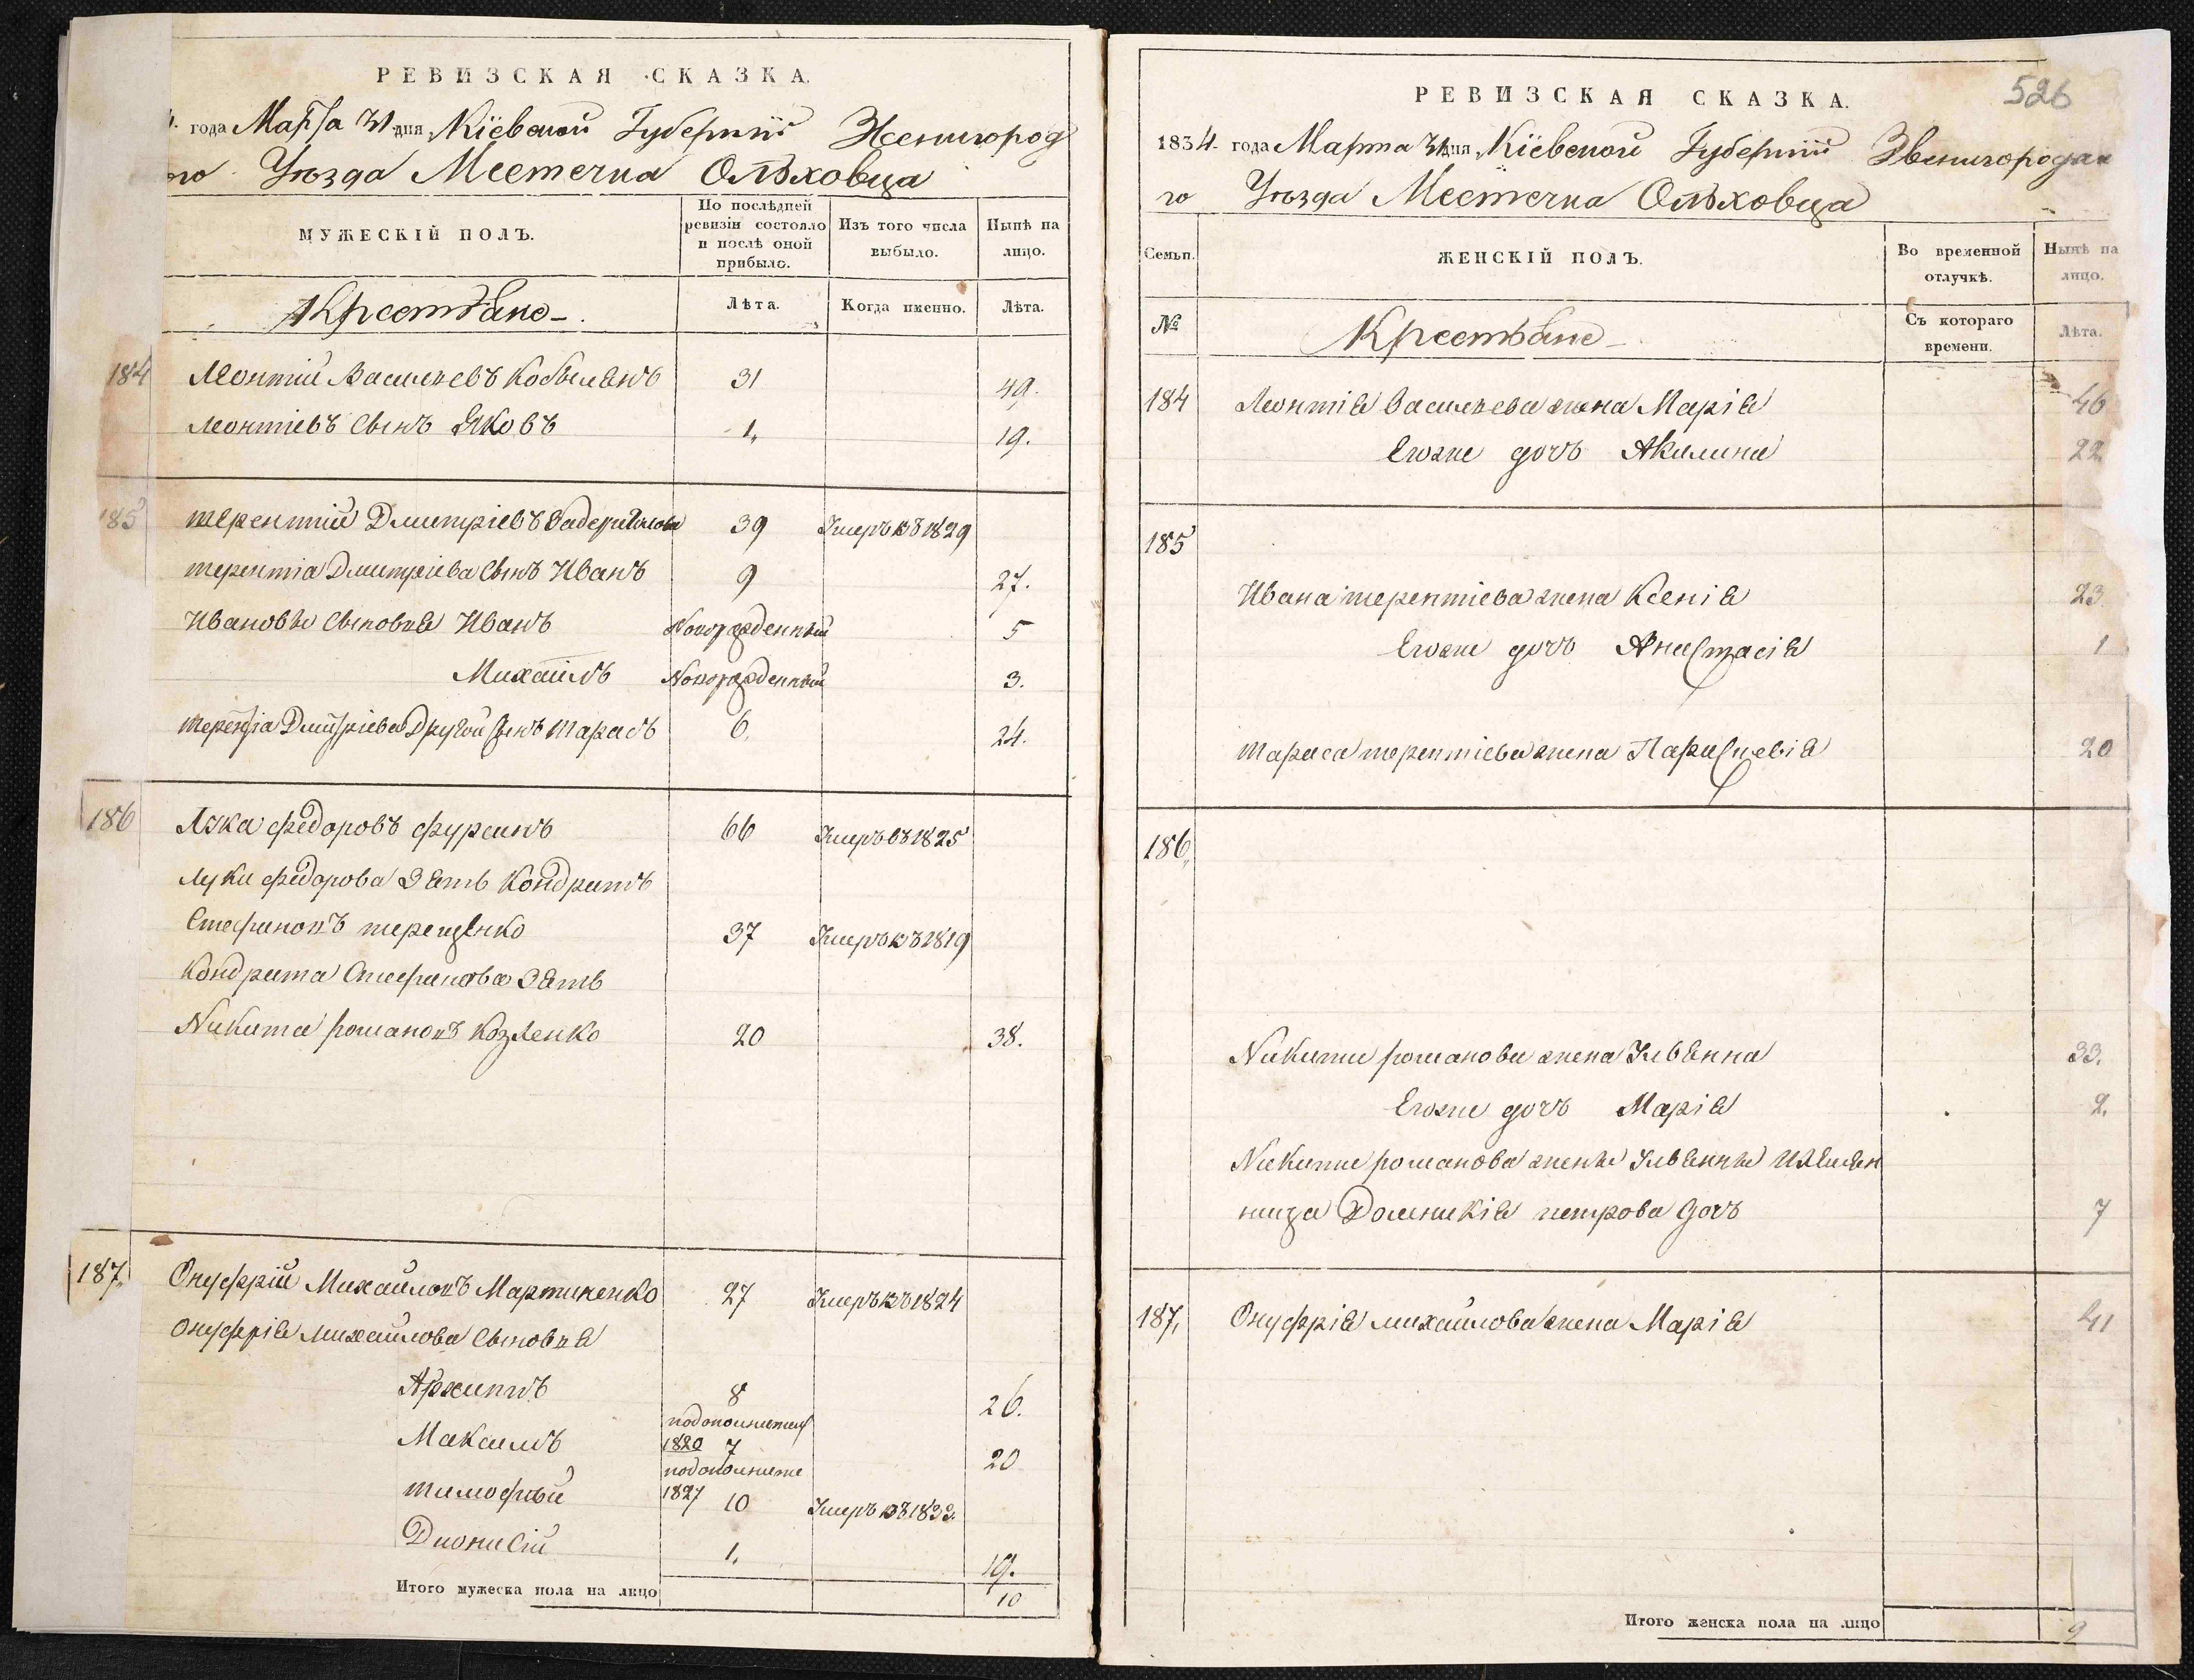 РЕВИЗСКАЯ СКАЗКА.
года Марта 31 дня, Кіевской Губерніи Звенигород
го Уѣзда Местечка Ольховца
МУЖЕСКІЙ ПОЛЪ.
По послѣдней ревизіи состояло и послѣ оной прибыло.
Изъ того числа выбыло.
Нынѣ на лицо.
Крестьяне
Лѣта.
Когда именно.
Лѣта.
184 Леонтій Васильевъ Кобылянъ 31 49.
Леонтіевъ Сынъ Яковъ 1, 19.
185 Терентій Дмитріевъ 39 Умеръ въ 1829
Терентіа Дмитріева Сынъ Иванъ 9 27.
Ивановы Сыновья Иванъ Новорожденный 5
Михаилъ Новорожденный 3.
Терентіа Дмитріева Другой Сынъ Тарасъ 6, 24.
186 Лука Федоровъ Фурсинъ 66 Умеръ въ 1825
Луки Федорова Зять Кондратъ
Стефановъ Терещенко 37 Умеръ въ 1819
Кондрата Стефанова Зять
Никита Романовъ Козленко 20 38.
187, Онуфрій Михайловъ Мартиненко 27 Умеръ въ 1824
Онуфрія Михайлова Сыновья
Архипъ 8 26.
Максимъ 1820 7 20
Тимофѣй 1827 10 Умеръ въ 1833.
Дионисій 1, 19.
Итого мужеска пола на лицо 10
526
РЕВИЗСКАЯ СКАЗКА.
1834. года Марта 31 дня, Кіевской Губерніи Звенигородска
го Уѣзда Местечка Ольховца
Семьи.
ЖЕНСКІЙ ПОЛЪ.
Во временной отлучкѣ.
Нынѣ на лицо.
№
Крестьяне
Съ котораго времени.
Лѣта.
184 Леонтія Васильева жена Марія 46
Егоже дочь Акилина 22
185
Ивана Терентіева жена Ксенія 23
Егоже дочь Анастасія 1
Тараса Терентіева жена Параскевія 20
186,
Никиты Романова жена Ульянна 33.
Егоже дочь Марія 2.
Никиты Романова жены Ульянны племян
ница Домникія Петрова дочь 7
187, Онуфрія Михайлова жена Марія 41
Итого женска пола на лицо 9